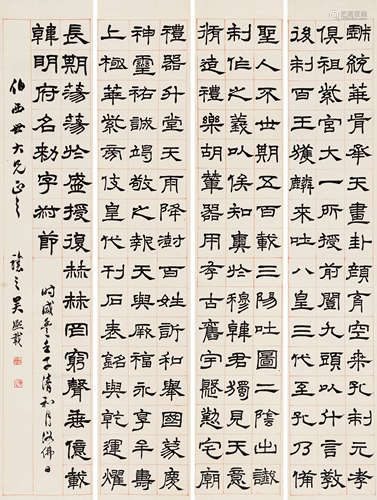 戲統華胥承天畫卦顏育空桑孔制元孝
俱祖紫宮大一所授前闓九頭以什言教
後制百王獲麟來吐八皇三代至孔乃備
聖人不世期五百載三陽吐圖二陰出讖
制作之義以俟知奧於穆韓君獨見天意
脩造禮樂胡輦器用存古舊宇殷勤宅廟
禮器升堂天雨降澍百姓訢和舉國蒙慶
神靈祐誠竭敬之報天與厥福永享牟壽
上極華紫旁伎皇代刊石表銘與乾運燿
長期蕩蕩於盛授復赫赫罔窮聲垂億載
韓明府名勑字叔節
時咸豐壬子清和月浴佛日
伯西世大兄正之
讓之吳熙載